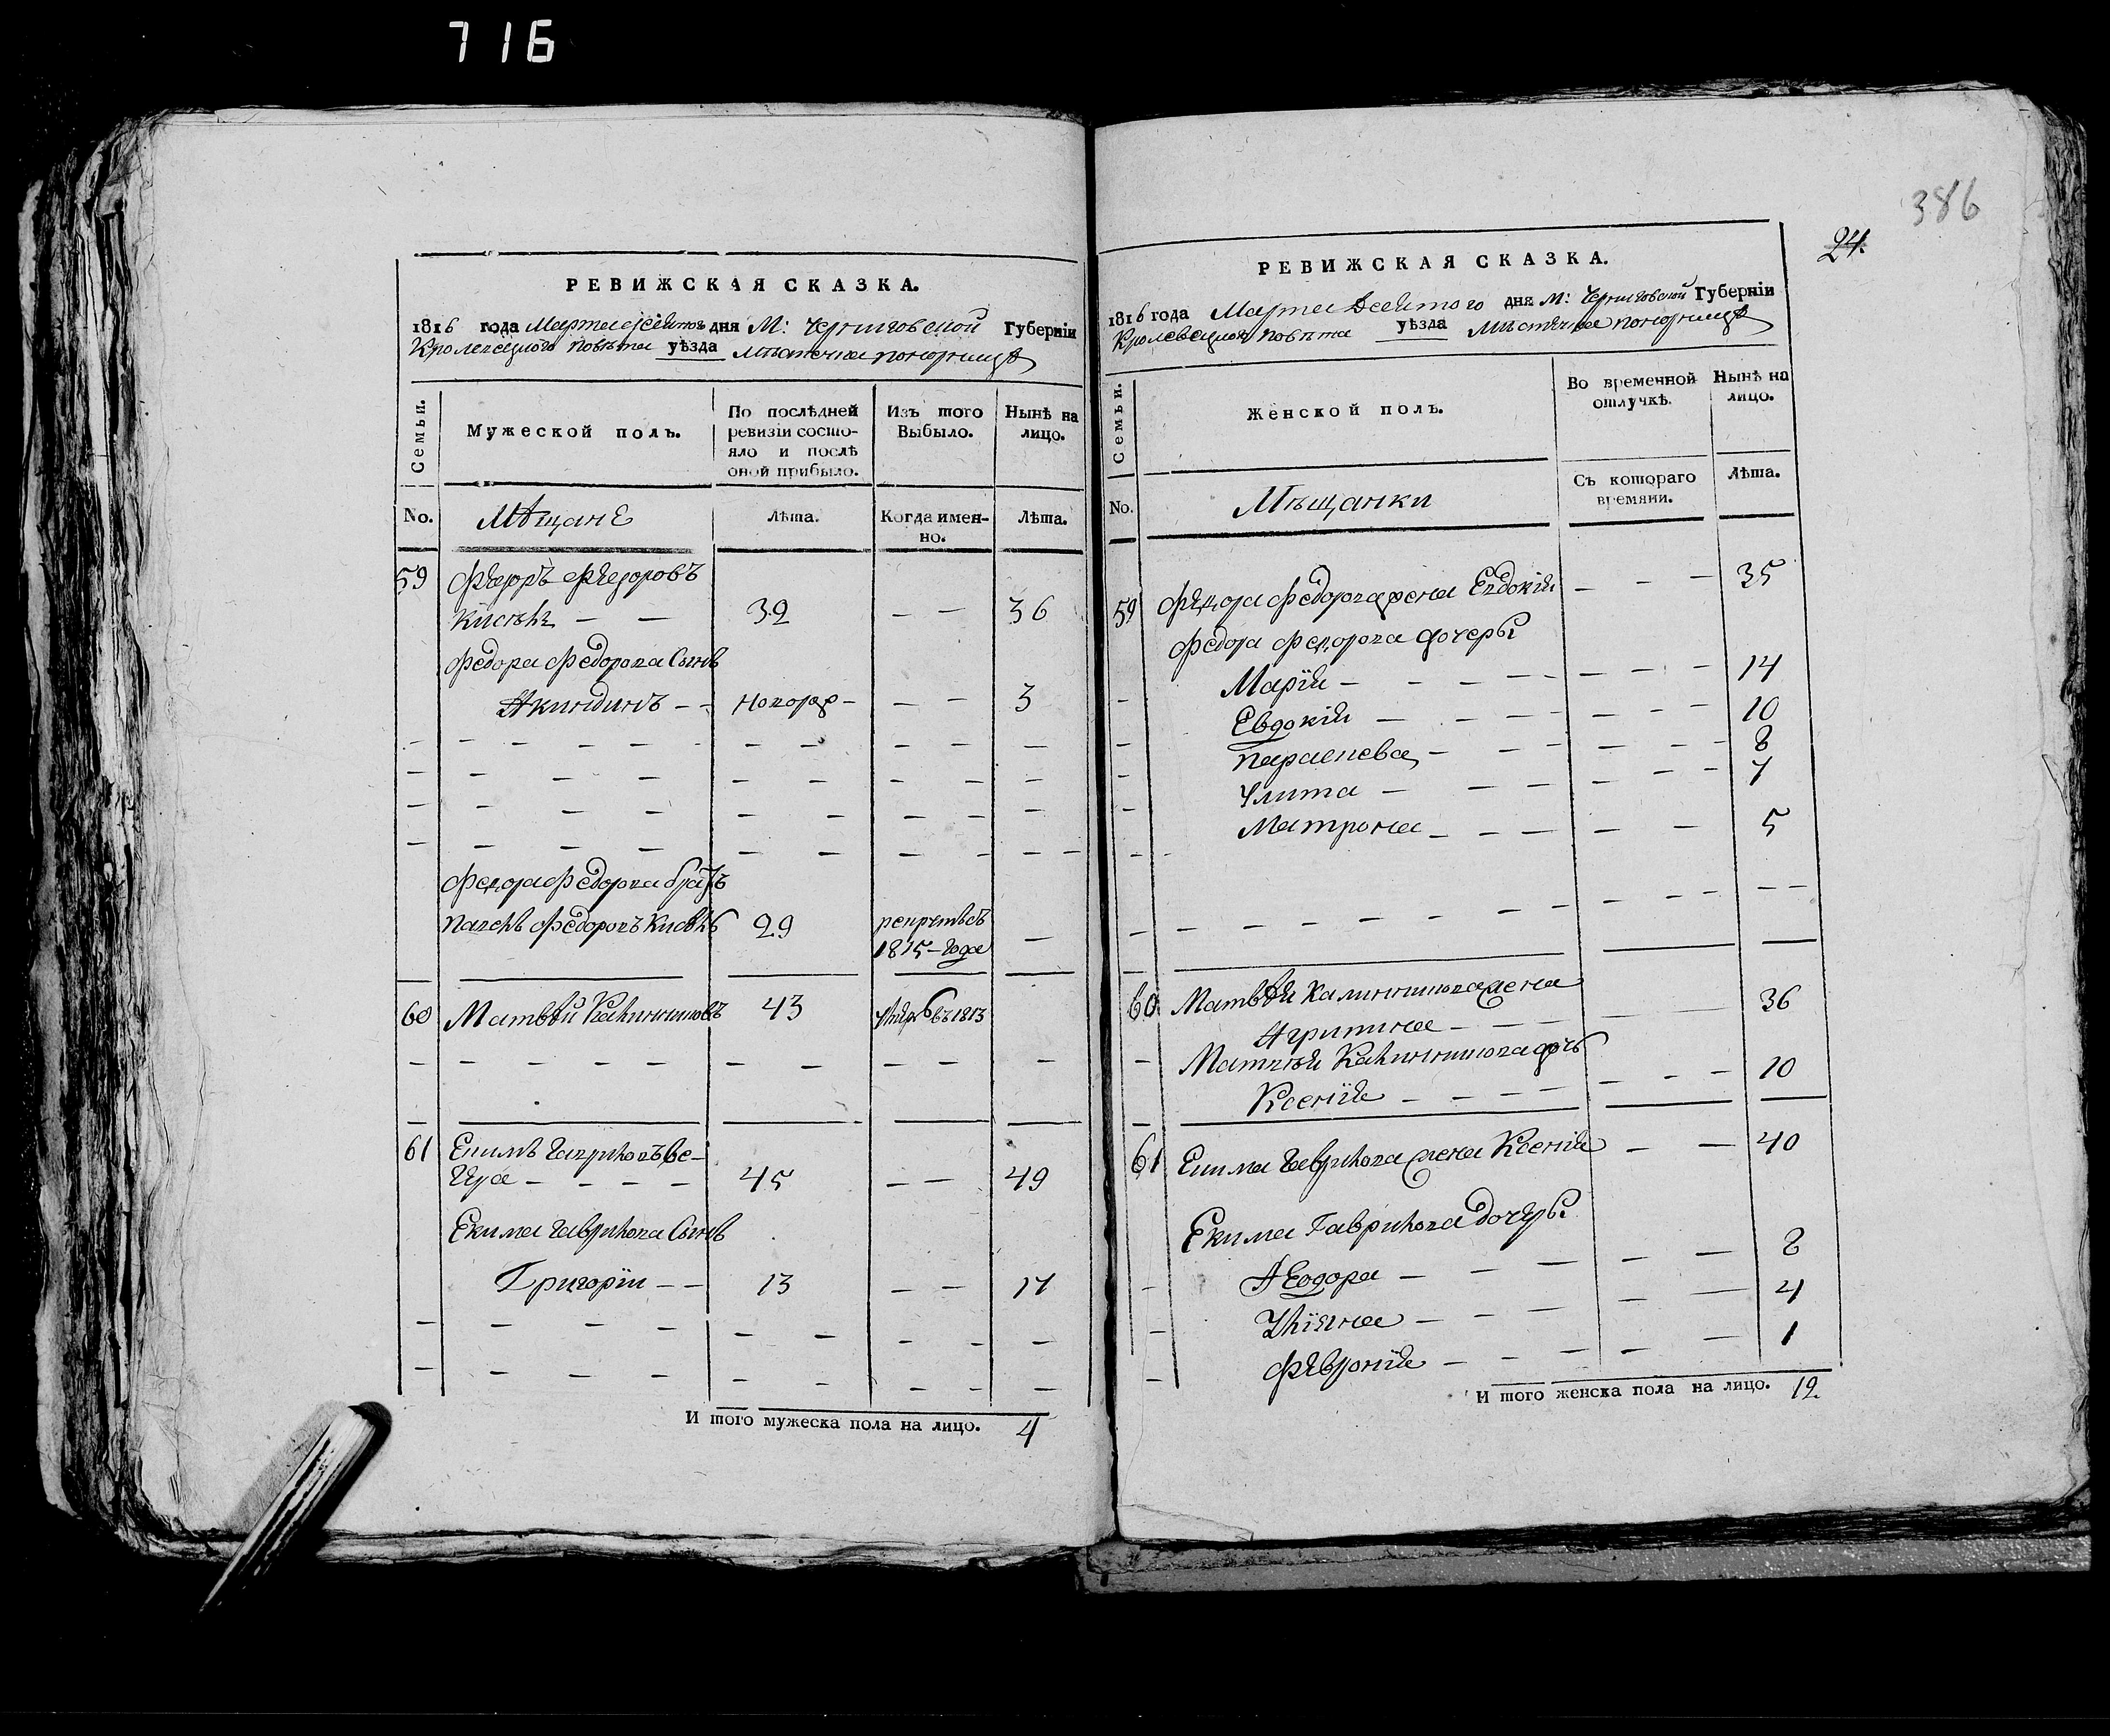 716
386
24.
РЕВИЖСКАЯ СКАЗКА.
1816 года Марта десятого дня М: Черниговской Губернїи
Кролевецкого повѣта уѣзда мѣстечка понорницѣ
Семьи.
Мужеской полъ.
По послѣдней ревизїи состо-
яло и послѣ
оной прибыло.
Изъ того
Выбыло.
Нынѣ на
лицо.
No.
Мѣщане
Лѣта.
Когда имен-
но.
Лѣта.
59 Федоръ Федоровъ
— — 32 — — 36
Федора Федорова Сынъ
Акиндинъ — — новорож — — — 3
Федора Федорова братъ
Федоровъ 29 рекрутъ въ
1815 — года —
60 Матвѣй Калиниковъ 43 умре въ 1813
61 Екимъ Гавриловъ Ве-
гера — — — — 45 — — 49
Екима Гаврилова Сынъ
Григорїи — — 13 — — 17
И того мужеска пола на лицо. 4
РЕВИЖСКАЯ СКАЗКА.
1816 года Марта десятого дня М: Черниговской Губернїи
Кролевецкого повѣта уѣзда мѣстечка понорницѣ
Семьи.
Женской полъ.
Во временной
отлучкѣ.
Нынѣ на
лицо.
No.
Мѣщанки
Съ котораго
времяни.
Лѣта.
59 Федора Федорова жена Евдокія — — — 35
Федора Федорова дочеры
Марїя — — — — — — — 14
Евдокія — — — — — — — 10
параскева — — — — — — 8
Улита — — — — — — 7
Матрона — — — — — — 5
60. Матвѣя Калиникова жена
Агрипина — — — — — 36
Матвѣя Калиникова дочь
Ксенїя — — — — — — — 10
61 Екима Гаврилова жена Ксенія — — 40
Екима Гаврилова дочеры
Ѳеодора — — — — — 8
Улїяна — — — — — 4
Февронїя — — — — — 1
И того женска пола на лицо. 12.